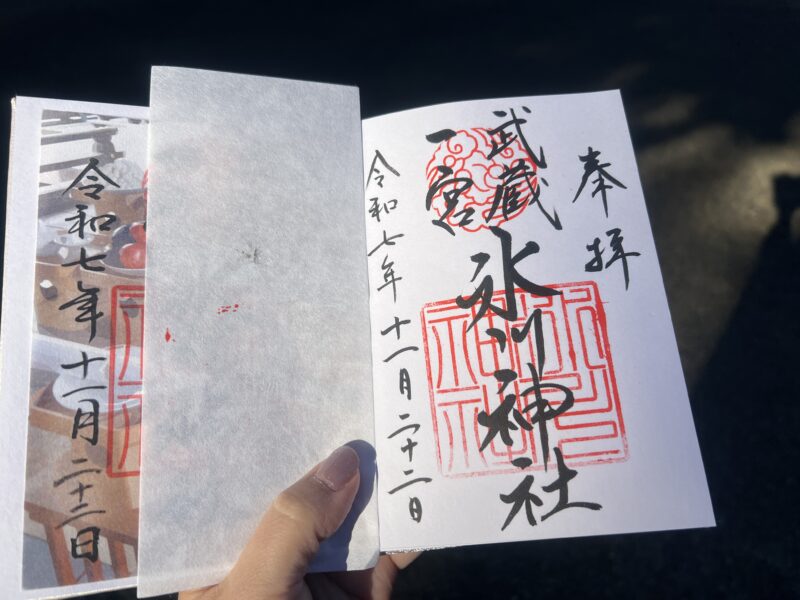 奉拝
武蔵
一宮
氷川神社
令和七年十一月二十二日
令和七年十一月二十二日